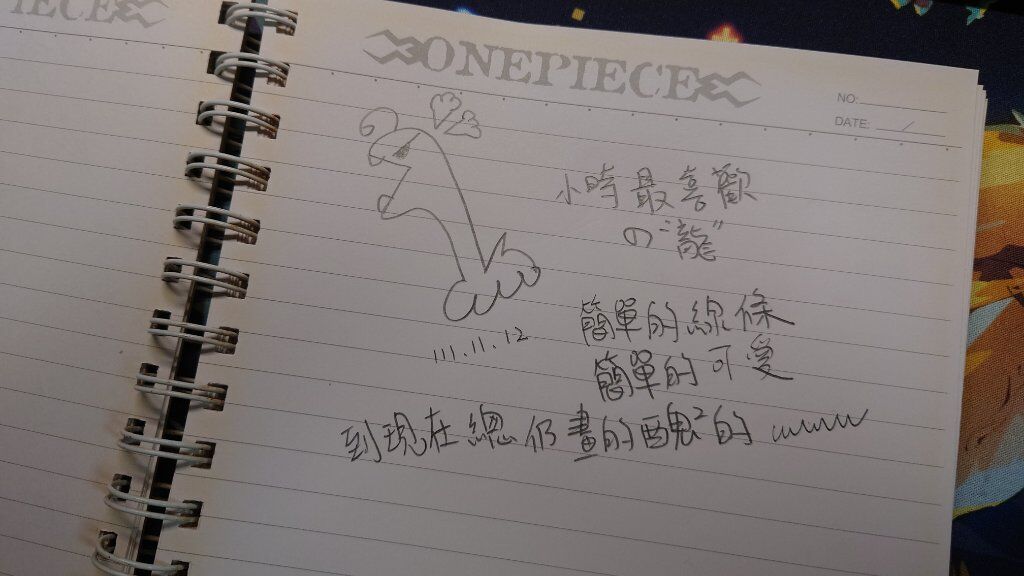 IECE
ONEPIECE
NO:
DATE: /
小時最喜歡
の"龍"
簡單的線條
簡單的可愛
111.11.12
到現在總仍畫的醜²的 wwww